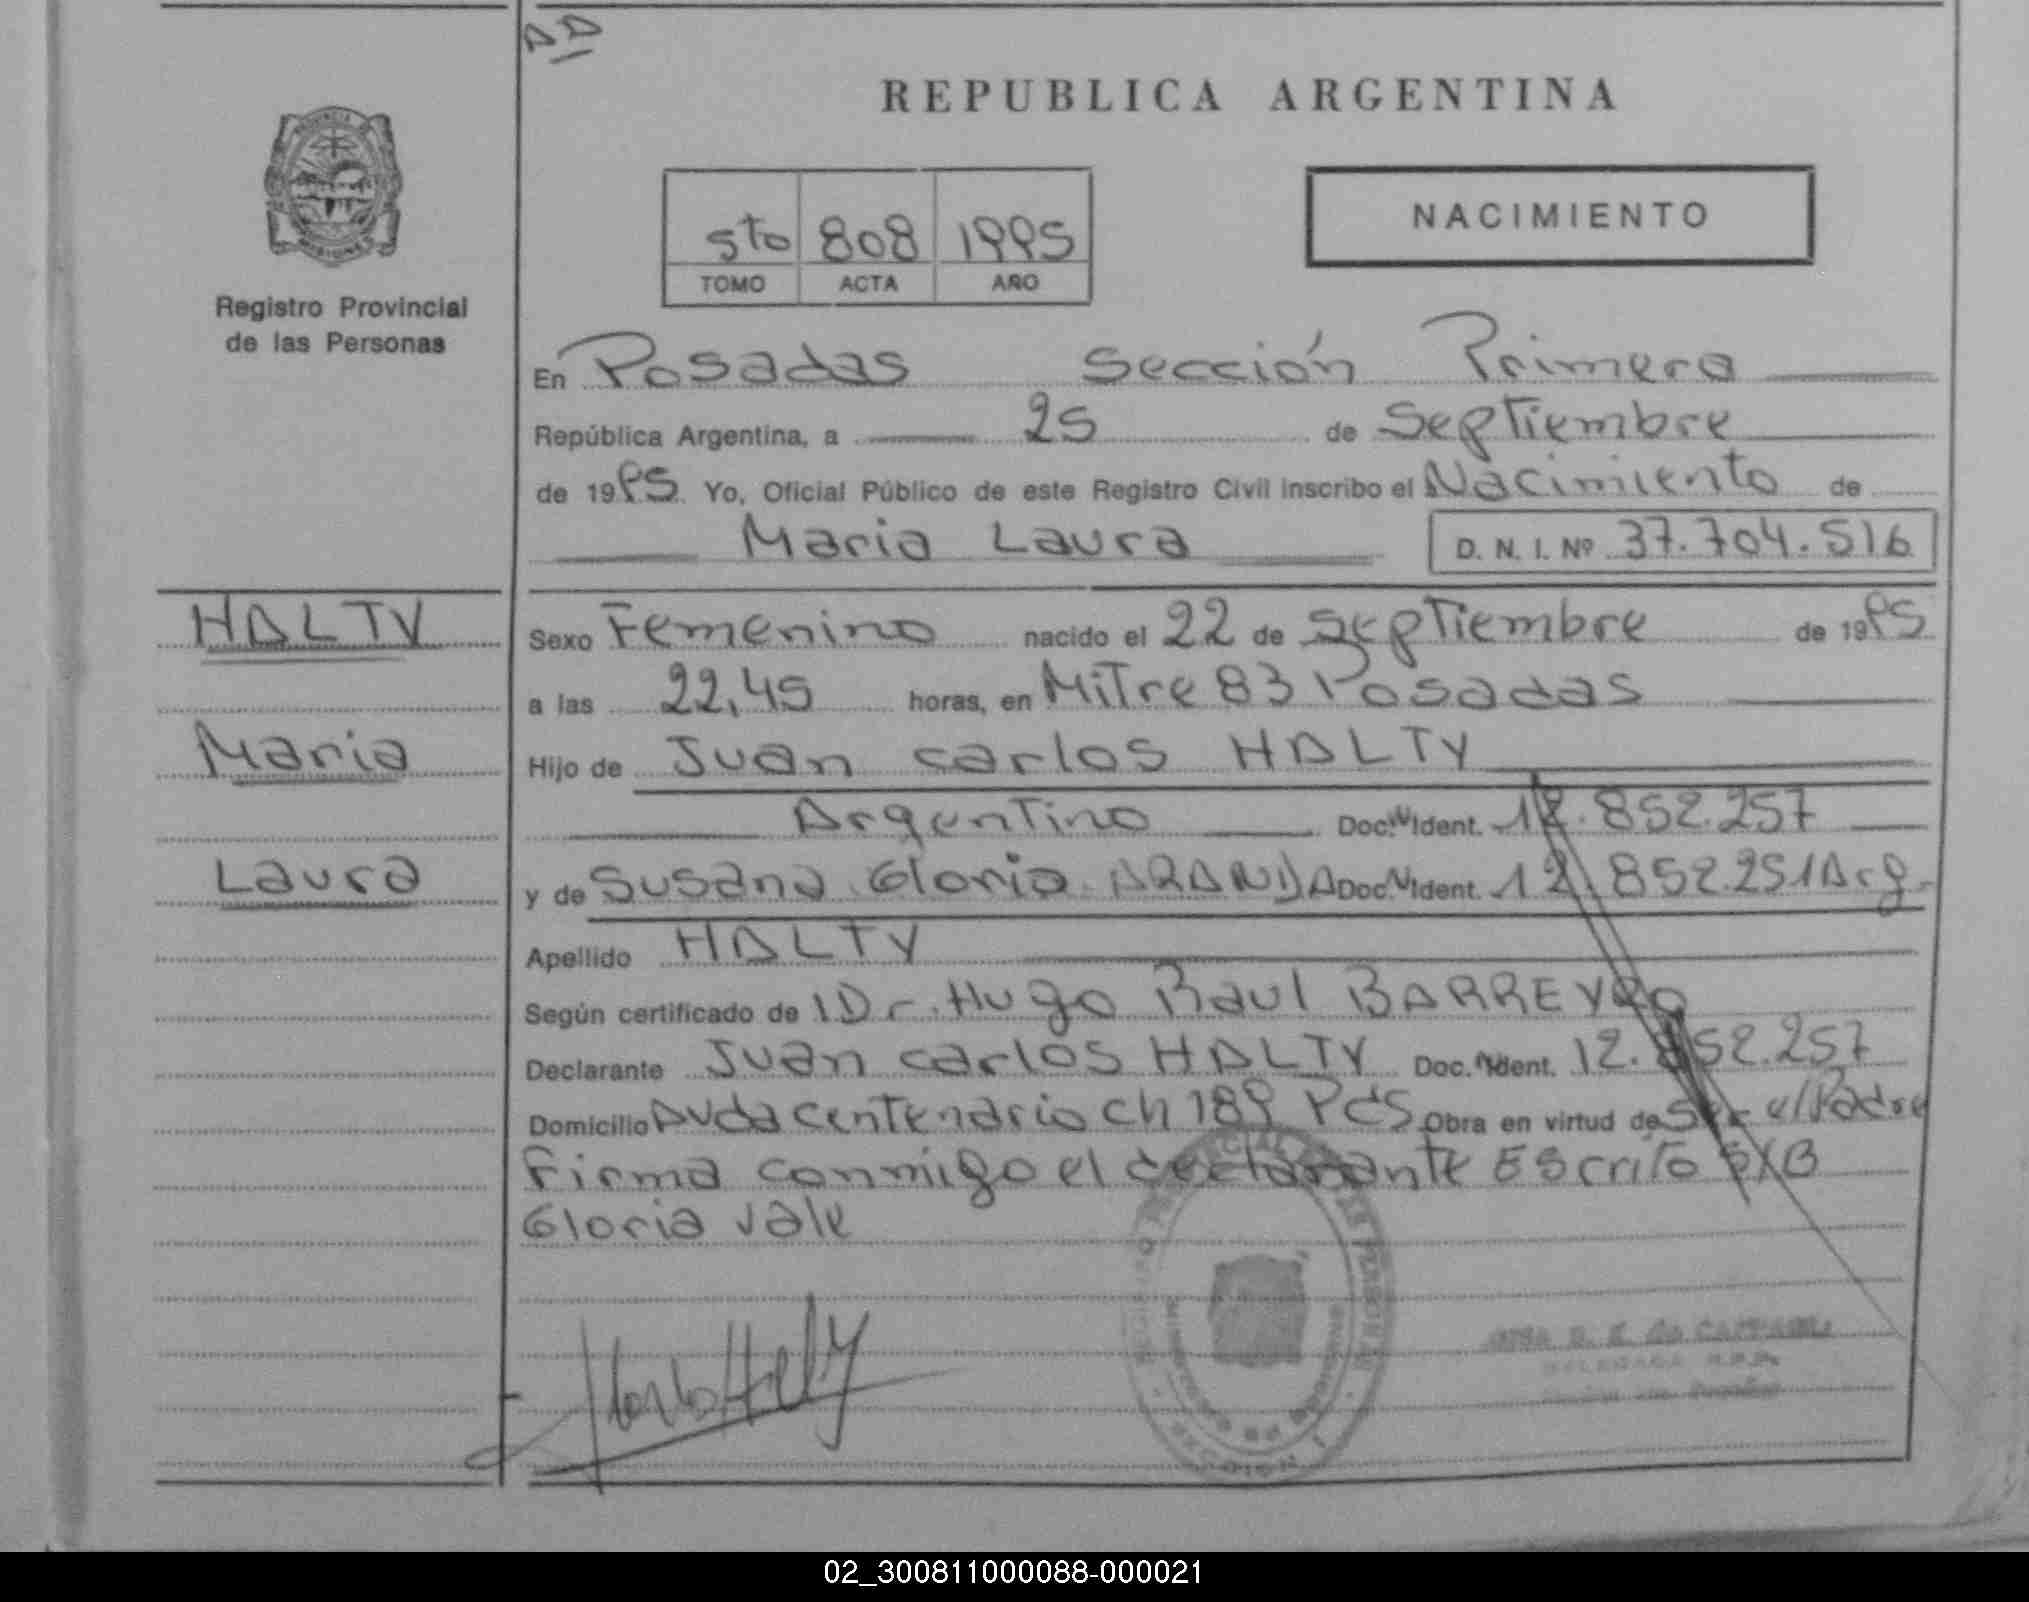 AA
REPUBLICA ARGENTINA
5to 808 1995
TOMO ACTA AÑO
NACIMIENTO
Registro Provincial
de las Personas
En Posadas Sección Primera
República Argentina, a 25 de Septiembre
de 1995 Yo, Oficial Público de este Registro Civil inscribo el Nacimiento de
Maria Laura D. N. I. Nº 37.704.516
HALTY
Maria
Laura
Sexo Femenino nacido el 22 de Septiembre de 1995
a las 22,45 horas, en Mitre 83 Posadas
Hijo de Juan Carlos HALTY
Argentino Doc. Ident. 12.852.257
y de Susana Gloria ARANDA Doc. Ident. 12.852.251 Arg.
Apellido HALTY
Según certificado de l Dr. Hugo Raul BARREYRO
Declarante Juan Carlos HALTY Doc. Ident. 12.852.257
Domicilio Avda Centenario Ch 189 Pdas Obra en virtud de Ser el Padre
Firma conmigo el declarante Escrito S/B
Gloria Vale
02_300811000088-000021